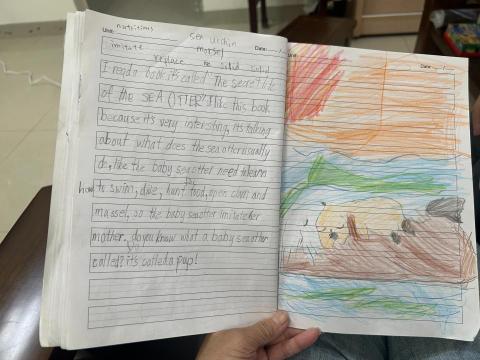 Unit: nutritious
sea urchin
Date:
imitate
mussel
replace
I read a book it's called "The secret life
of the SEA OTTER" I like this book
because it's very interesting, its talking
about what does the sea otter usually
do, like the baby sea otter need to learn
how to swim, dive, hunt for food, open clam and
mussel, so the baby sea otter imitate her
mother. do you know what a baby sea otter
called? it's called a pup!
Unit:
Date: